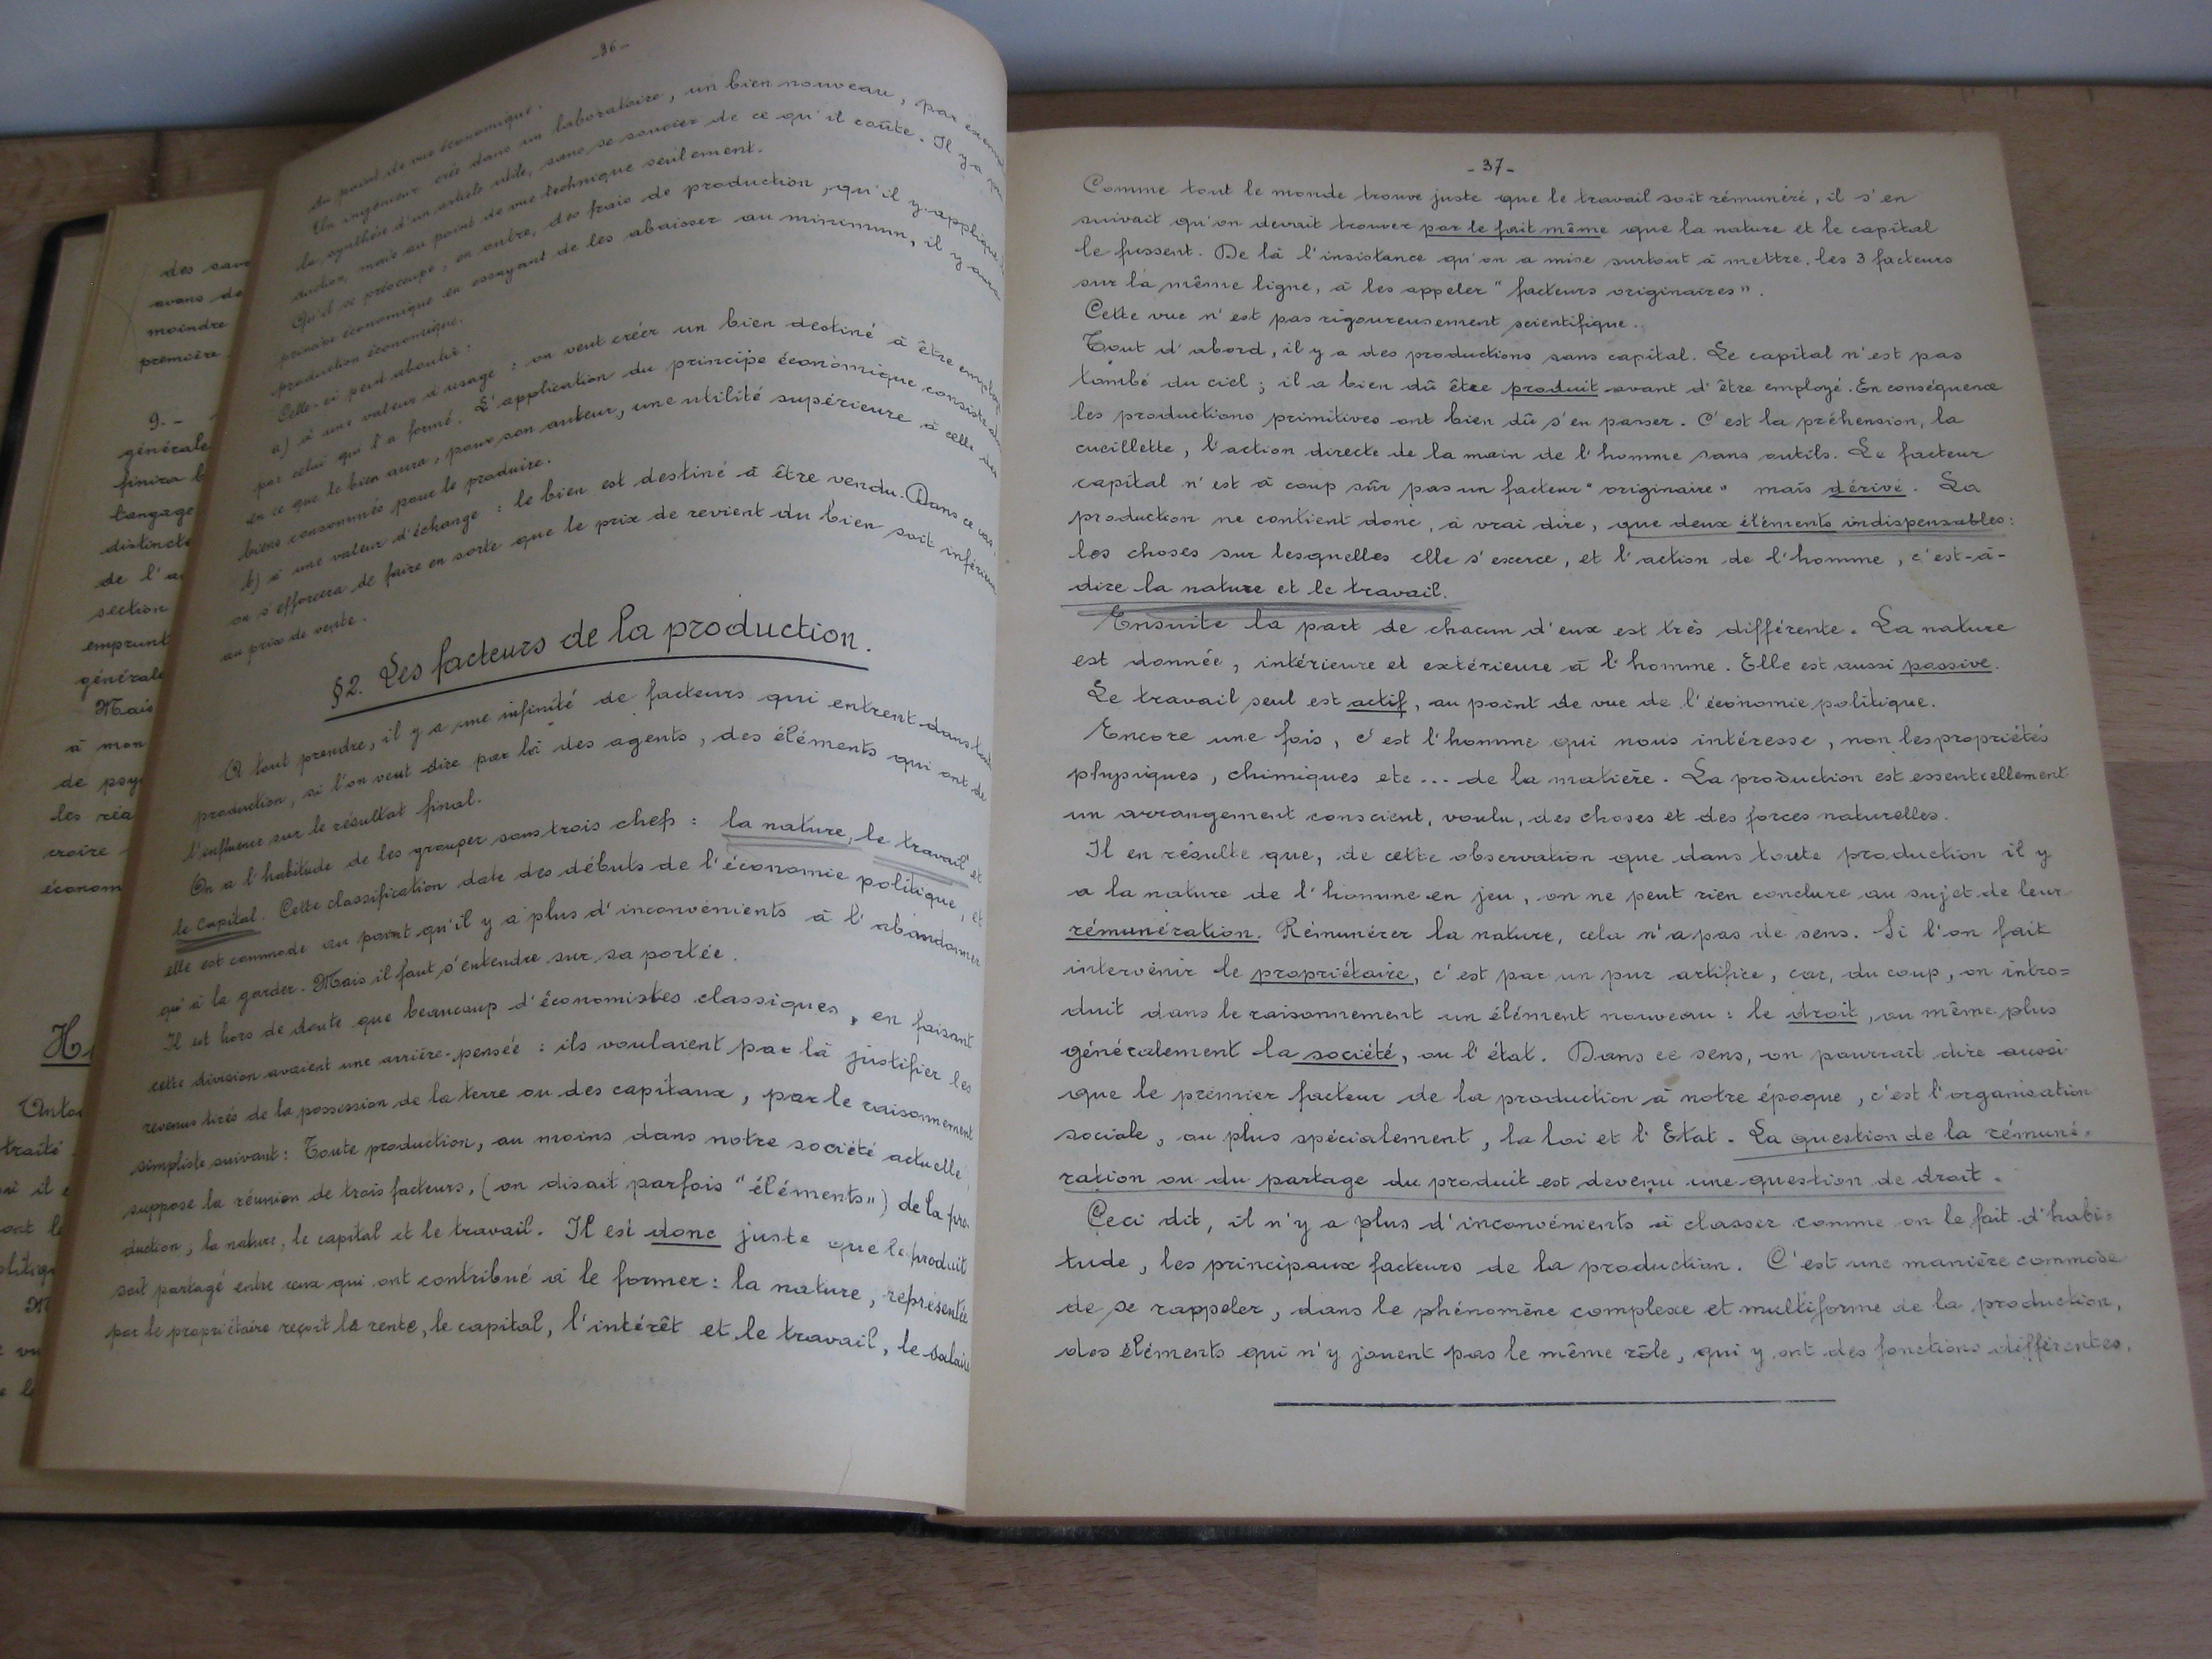 des
avons de
moindre
première
9. -
générale
finira
langage
distincte
de l'
section
emprunt
générale
Mais
à mon
de psy
les réa
croire
économ
traité
-36-
au point de vue économique.
Un ingénieur crée dans un laboratoire, un bien nouveau, par
la synthèse d'un article utile, sans se soucier de ce qu'il coûte. Il y a
duction, mais au point de vue technique seulement.
Qu'il se préoccupe, en outre, des frais de production, qu'il y applique
principe économique en essayant de les abaisser au minimum, il y aura
production économique.
Celle-ci peut aboutir :
a) à une valeur d'usage : on veut créer un bien destiné à être
par celui qui l'a formé. L'application du principe économique consiste
en ce que le bien aura, pour son auteur, une utilité supérieure à celle des
biens consommés pour le produire.
b) à une valeur d'échange : le bien est destiné à être vendu. Dans ce cas,
on s'efforcera de faire en sorte que le prix de revient du bien soit inférieur
au prix de vente.
§2. Les facteurs de la production.
A tout prendre, il y a une infinité de facteurs qui entrent dans
production, si l'on veut dire par là des agents, des éléments qui ont de
l'influence sur le résultat final.
On a l'habitude de les grouper sous trois chefs : la nature, le travail et
le capital. Cette classification date des débuts de l'économie politique, et
elle est commode au point qu'il y a plus d'inconvénients à l'abandonner
qu'à la garder. Mais il faut s'entendre sur sa portée.
Il est hors de doute que beaucoup d'économistes classiques, en faisant
cette division avaient une arrière-pensée : ils voulaient par là justifier les
revenus tirés de la possession de la terre ou des capitaux, par le raisonnement
simpliste suivant : Toute production, au moins dans notre société actuelle,
suppose la réunion de trois facteurs, (on disait parfois "éléments") de la pro-
duction, la nature, le capital et le travail. Il est donc juste que le produit
soit partagé entre ceux qui ont contribué à le former : la nature, représentée
par le propriétaire reçoit la rente, le capital, l'intérêt et le travail, le salaire
-37-
Comme tout le monde trouve juste que le travail soit rémunéré, il s'en
suivait qu'on devait trouver par le fait même que la nature et le capital
le fussent. De là l'insistance qu'on a mise surtout à mettre les 3 facteurs
sur la même ligne, à les appeler "facteurs originaires".
Cette vue n'est pas rigoureusement scientifique.
Tout d'abord, il y a des productions sans capital. Le capital n'est pas
tombé du ciel ; il a bien dû être produit avant d'être employé. En conséquence
les productions primitives ont bien dû s'en passer. C'est la préhension, la
cueillette, l'action directe de la main de l'homme sans outils. Le facteur
capital n'est à coup sûr pas un facteur "originaire" mais dérivé. La
production ne contient donc, à vrai dire, que deux éléments indispensables :
les choses sur lesquelles elle s'exerce, et l'action de l'homme, c'est-à-
dire la nature et le travail.
Ensuite la part de chacun d'eux est très différente. La nature
est donnée, intérieure et extérieure à l'homme. Elle est aussi passive.
Le travail seul est actif, au point de vue de l'économie politique.
Encore une fois, c'est l'homme qui nous intéresse, non les propriétés
physiques, chimiques etc... de la matière. La production est essentiellement
un arrangement conscient, voulu, des choses et des forces naturelles.
Il en résulte que, de cette observation que dans toute production il y
a la nature de l'homme en jeu, on ne peut rien conclure au sujet de leur
rémunération. Rémunérer la nature, cela n'a pas de sens. Si l'on fait
intervenir le propriétaire, c'est par un pur artifice, car, du coup, on intro=
duit dans le raisonnement un élément nouveau : le droit, ou même plus
généralement la société, ou l'état. Dans ce sens, on pourrait dire aussi
que le premier facteur de la production à notre époque, c'est l'organisation
sociale, ou plus spécialement, la loi et l'Etat. La question de la rémuné-
ration ou du partage du produit est devenu une question de droit.
Ceci dit, il n'y a plus d'inconvénients à classer comme on le fait d'habi=
tude, les principaux facteurs de la production. C'est une manière commode
de se rappeler, dans le phénomène complexe et multiforme de la production,
des éléments qui n'y jouent pas le même rôle, qui y ont des fonctions différentes.